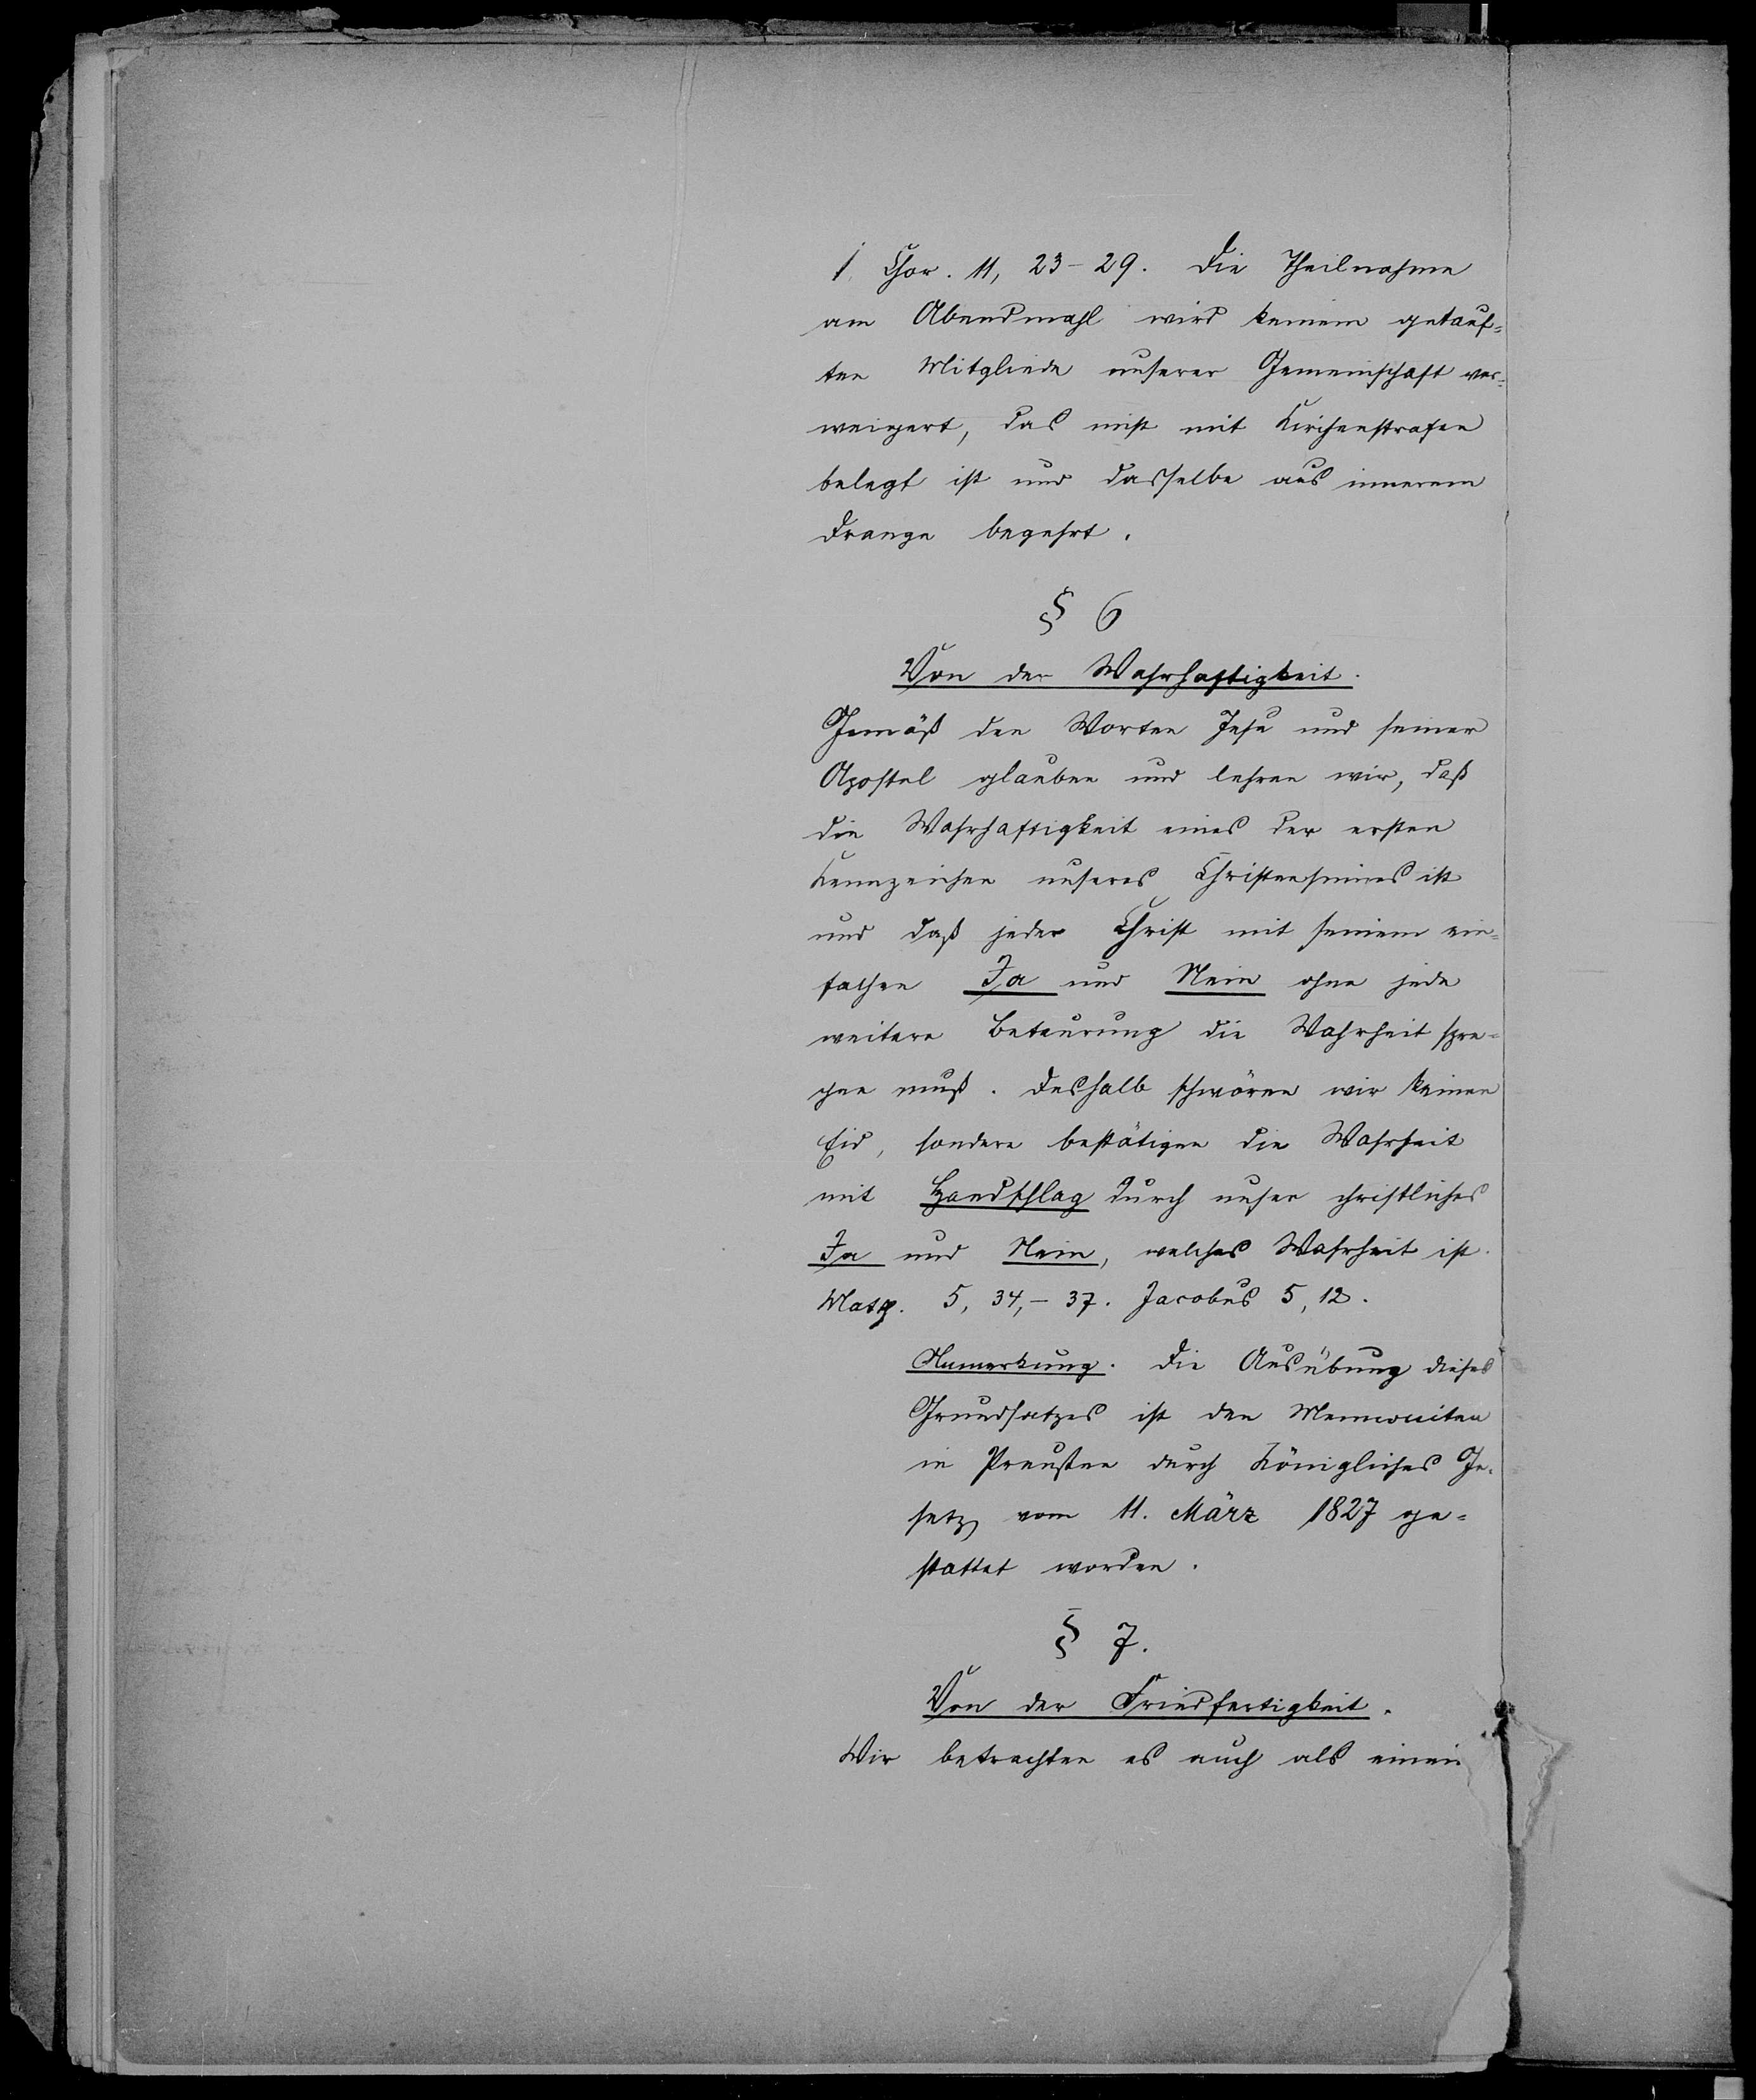 1. Chor. 11, 23-29. Die Theilnahme
am Abendmahl wird keinem getauf=
ten Mitgliede unserer Gemeinschaft ver=
weigert, das nicht mit Kirchenstrafen
belegt ist und dasselbe aus innerem
Drange begehrt.
§ 6
Von der Wahrhaftigkeit.
Gemäß den Worten Jesu und seiner
Apostel glauben und lehren wir, daß
die Wahrhaftigkeit eines der ersten
Kennzeichen unseres Christensinnes ist
und daß jeder Christ mit seinem ein=
fachen Ja und Nein ohne jede
weitere Beteurung die Wahrheit spre=
chen muß. Deshalb schwören wir keinen
Eid, sondern bestätigen die Wahrheit
mit Handschlag durch unser christliches
Ja und Nein, welches Wahrheit ist.
Math. 5, 34,- 37. Jacobus 5, 12.
Anmerkung. Die Ausübung dieses
Grundsatzes ist den Mennoniten
in Preußen durch Königliches Ge=
setz vom 11. März 1827 ge=
stattet worden.
§ 7.
Von der Friedfertigkeit.
Wir betrachten es auch als einen